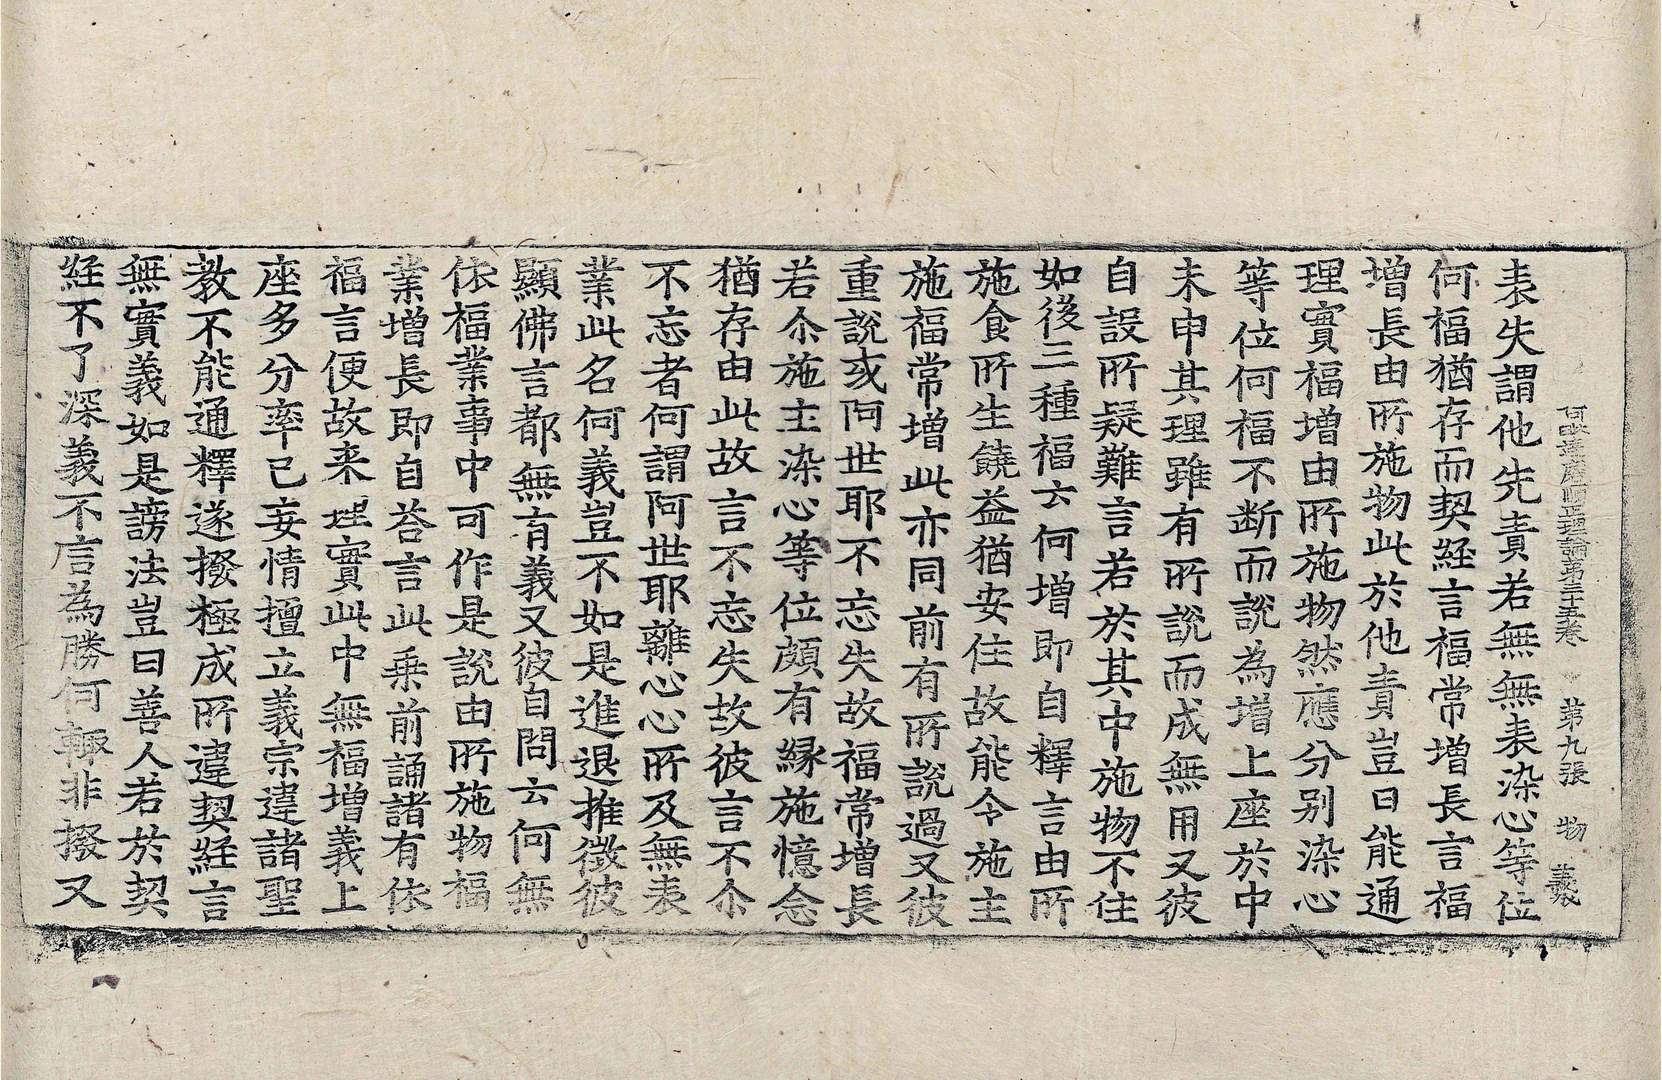 阿毗達磨順正理論第三十五卷 第九張 物 義
表失謂他先責若無無表染心等位
何福猶存而契経言福常增長言福
增長由所施物此於他責豈曰能通
理實福增由所施物然應分别染心
等位何福不断而說為增上座於中
未申其理雖有所說而成無用又彼
自設所疑難言若於其中施物不住
如後三種福云何增即自釋言由所
施食所生饒益猶安住故能令施主
施福常增此亦同前有所說過又彼
重說或阿世耶不忘失故福常增長
若尒施主染心等位頗有縁施憶念
猶存由此故言不忘失故彼言不尒
不忘者何謂阿世耶離心心所及無表
業此名何義豈不如是進退推徵彼
顯佛言都無有義又彼自問云何無
依福業事中可作是說由所施物福
業增長即自荅言此乗前誦諸有依
福言便故来理實此中無福增義上
座多分率已妄情擅立義宗違諸聖
教不能通釋遂撥極成所違契経言
無實義如是謗法豈曰善人若於契
経不了深義不言為勝何輒非撥又